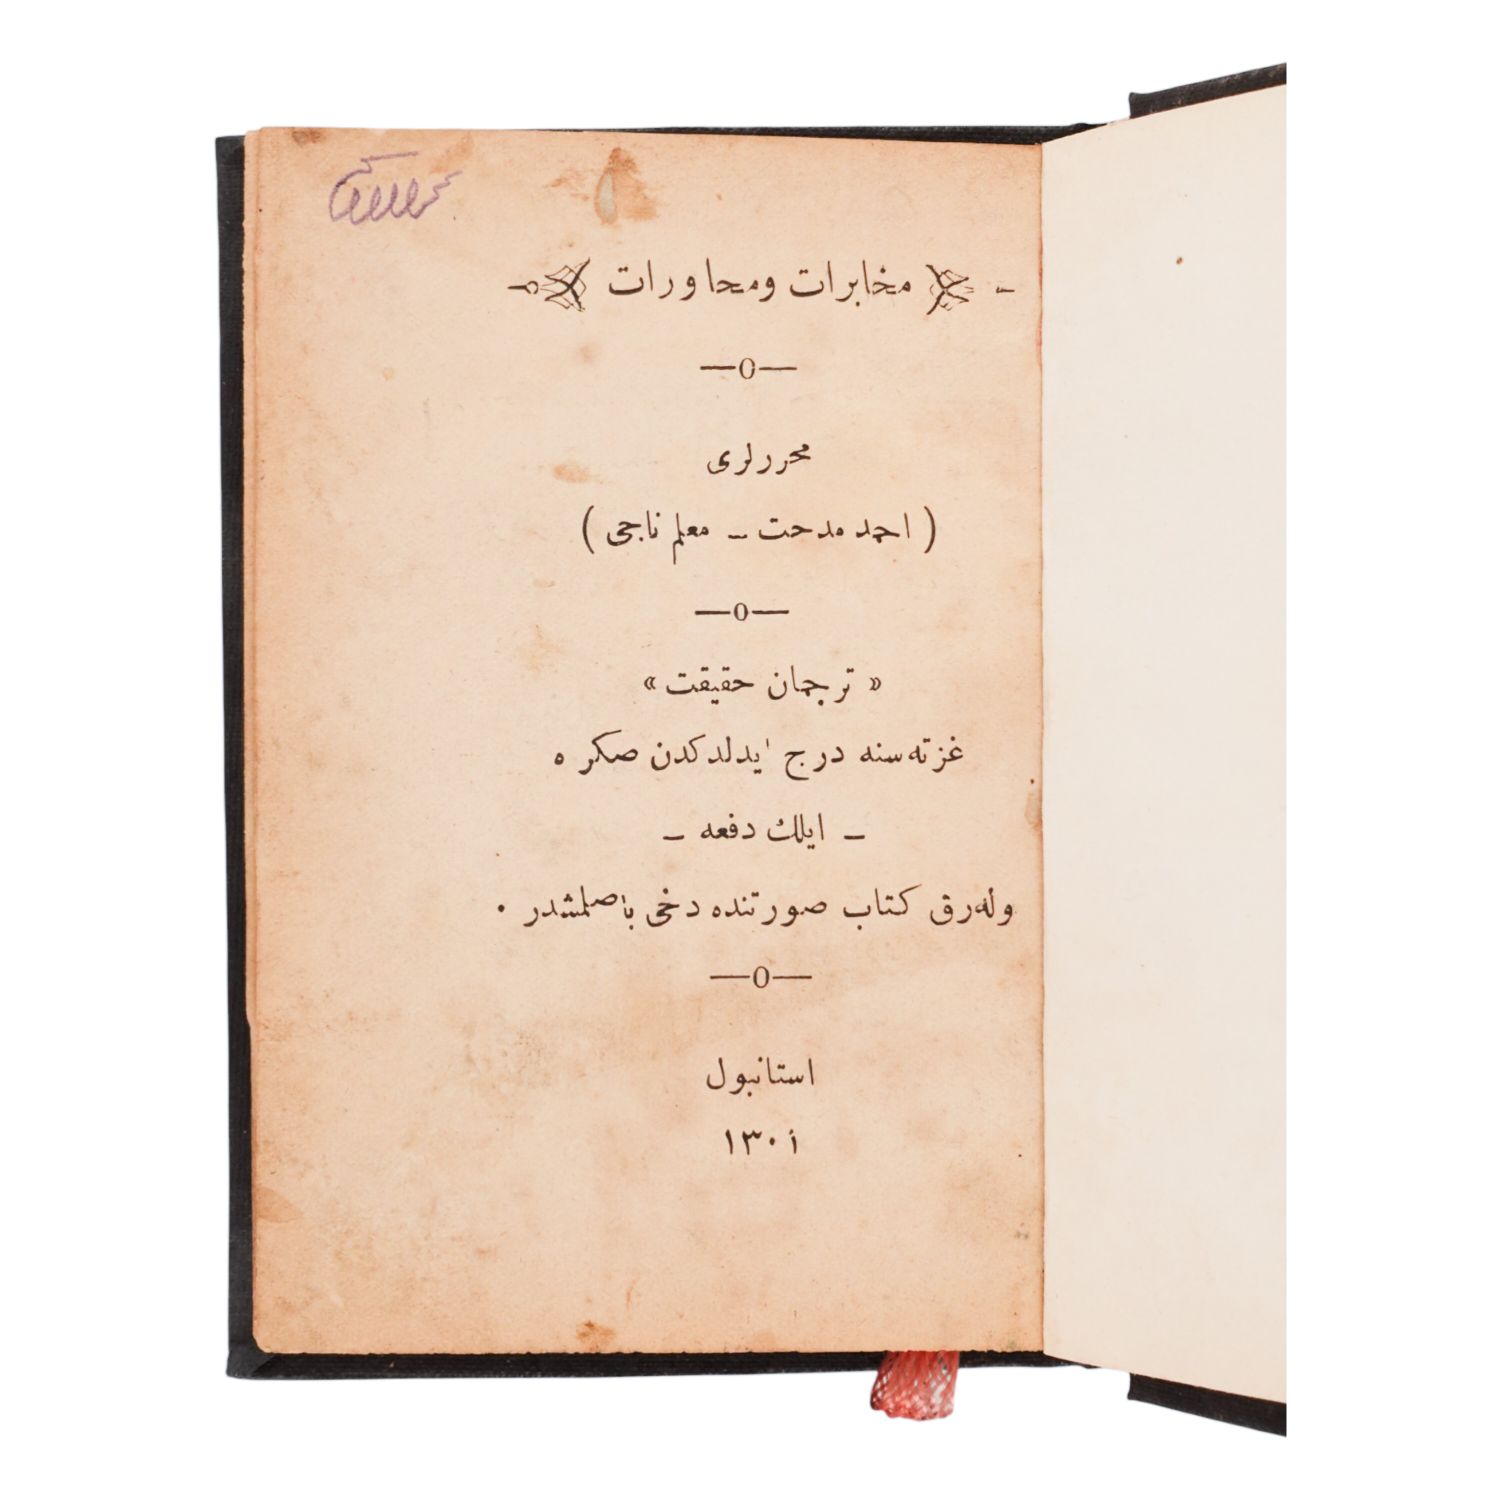 مخابرات ومحاورات
محررلری
( احمد مدحت ــ معلم ناجی )
« ترجمان حقیقت »
غزته‌سنه درج ایدلدكدن صكره
ــ ایلك دفعه ــ
وله‌رق كتاب صورتنده دخی باصلمشدر .
استانبول
١٣٠١